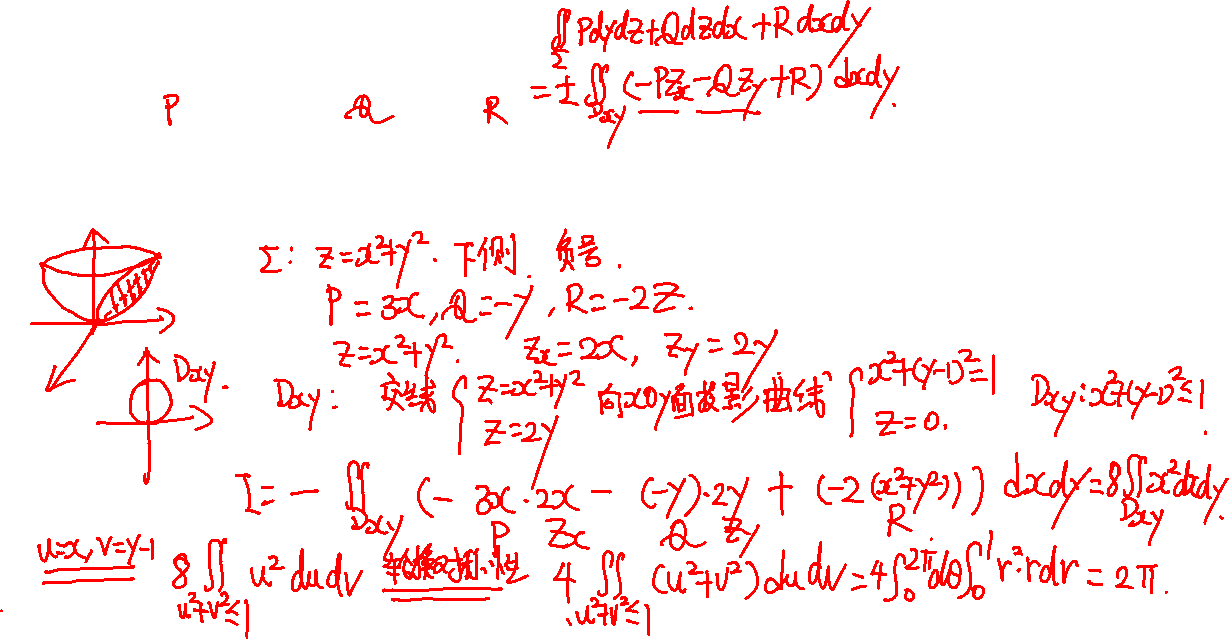 ∬_Σ Pdydz+Qdzdx+Rdxdy
=±∬_{Dxy} (-Pz_x-Qz_y+R)dxdy.
P Q R
Σ: z=x²+y². 下侧 负号.
P=3x, Q=-y, R=-2z.
z=x²+y². z_x=2x, z_y=2y
Dxy.
Dxy: 交线 { z=x²+y² z=2y 向xoy面投影曲线 { x²+(y-1)²=1 z=0. Dxy: x²+(y-1)²≤1
I=-∬_{Dxy} (-3x·2x-(-y)·2y+(-2(x²+y²)))dxdy=8∬_{Dxy} x²dxdy.
P z_x Q z_y R
u=x, v=y-1 8∬_{u²+v²≤1} u²dudv 轮换对称性 4∬_{u²+v²≤1} (u²+v²)dudv=4∫_0^{2π}dθ∫_0^1 r²·rdr=2π.